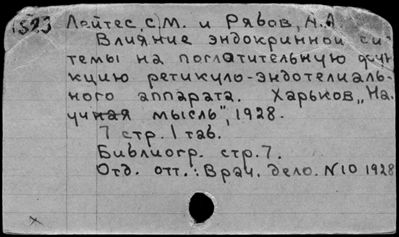 1523 Лейтес, С.М. и Рябов, А.А
Влияние эндокринной си-
темы на поглатительную функ
кцию ретикуло-эндотелиаль-
ного аппарата. Харьков „На-
учная мысль", 1928.
7 стр. 1 таб.
Библиогр. стр. 7.
Отд. отт.: Врач. дело. N10 1928